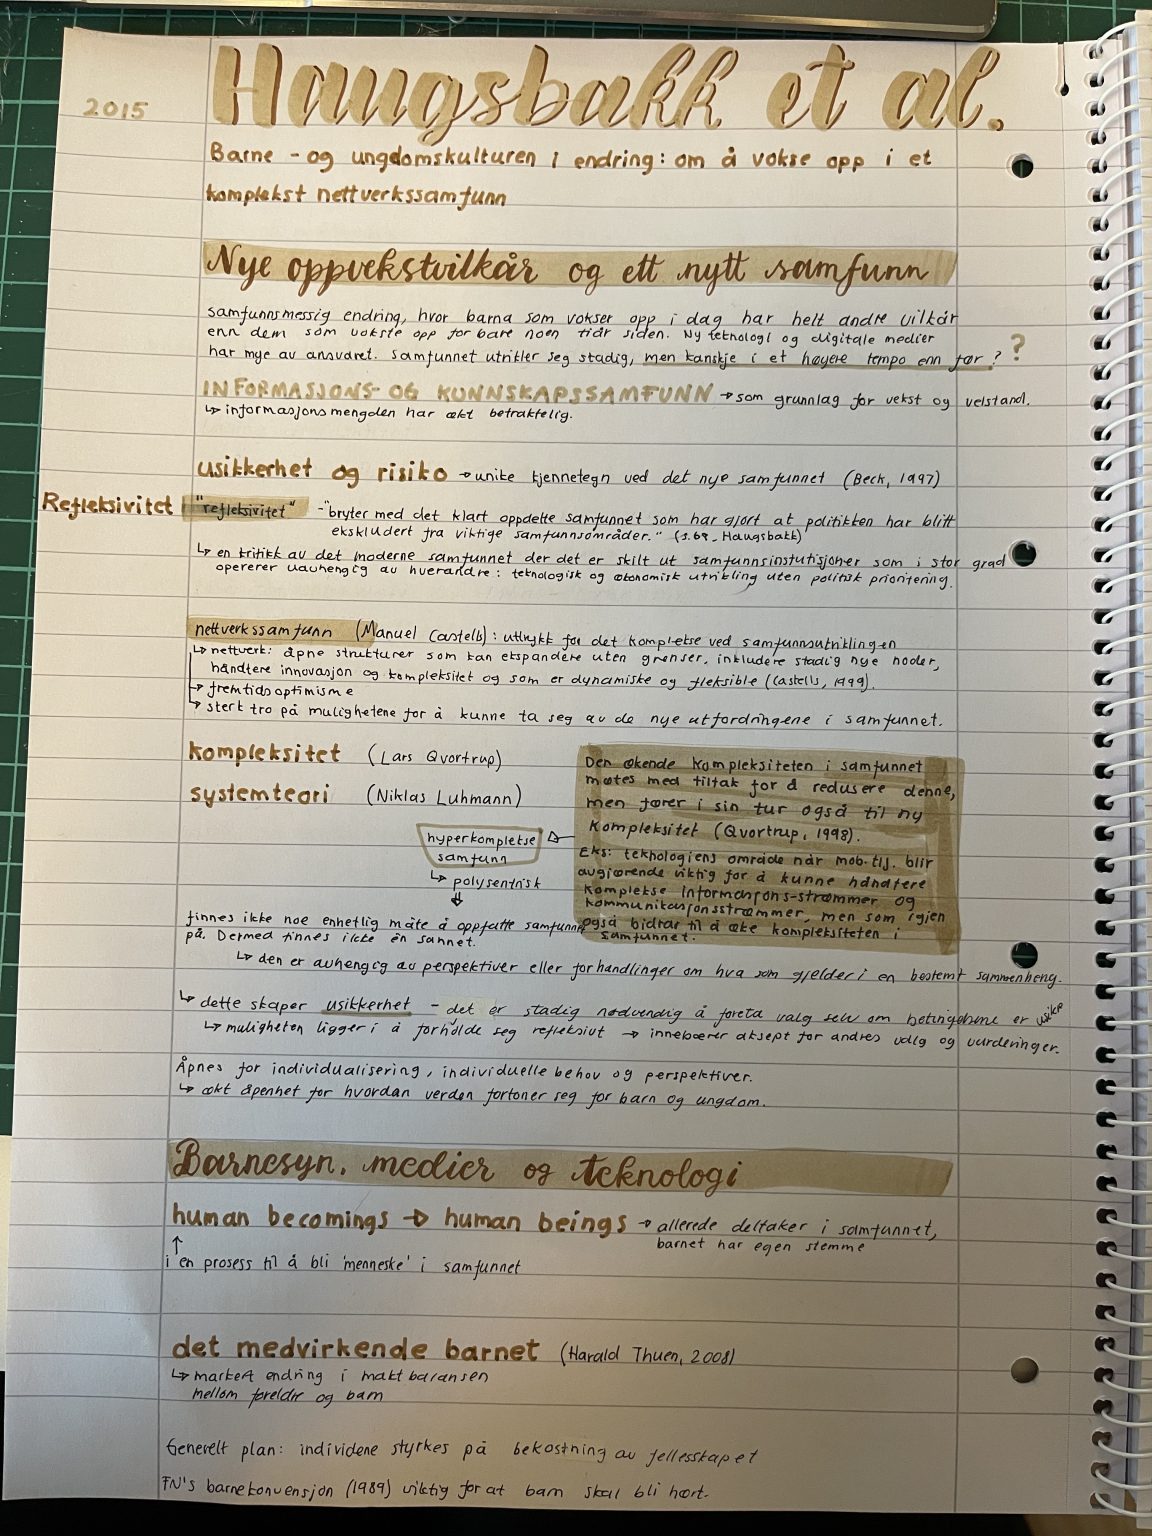 2015
Haugsbakk et al.
Barne - og ungdomskulturen i endring: om å vokse opp i et
komplekst nettverkssamfunn
Nye oppvekstvilkår og ett nytt samfunn
samfunnsmessig endring, hvor barna som vokser opp i dag har helt andre vilkår
enn dem som vokste opp for bare noen tiår siden. Ny teknologi og digitale medier
har mye av ansvaret. Samfunnet utvikler seg stadig, men kanskje i et høyere tempo enn før? ?
INFORMASJONS- OG KUNNSKAPSSAMFUNN → som grunnlag for vekst og velstand.
↳ informasjonsmengden har økt betraktelig.
usikkerhet og risiko → unike kjennetegn ved det nye samfunnet (Beck, 1997)
Refleksivitet "refleksivitet" - "bryter med det klart oppdelte samfunnet som har gjort at politikken har blitt
ekskludert fra viktige samfunnsområder." (s.68, Haugsbakk)
↳ en kritikk av det moderne samfunnet der det er skilt ut samfunnsinstutisjoner som i stor grad
opererer uavhengig av hverandre: teknologisk og økonomisk utvikling uten politisk prioritering.
nettverkssamfunn (Manuel Castells): uttrykk for det komplekse ved samfunnsutviklingen
↳ nettverk: åpne strukturer som kan ekspandere uten grenser, inkludere stadig nye noder,
håndtere innovasjon og kompleksitet og som er dynamiske og fleksible (Castells, 1999).
↳ fremtidsoptimisme
↳ sterk tro på mulighetene for å kunne ta seg av de nye utfordringene i samfunnet.
kompleksitet (Lars Qvortrup)
systemteori (Niklas Luhmann)
Den økende kompleksiteten i samfunnet
møtes med tiltak for å redusere denne,
men fører i sin tur også til ny
kompleksitet (Qvortrup, 1998).
Eks: teknologiens område når mob.tlf. blir
avgjørende viktig for å kunne håndtere
komplekse informasjons-strømmer og
kommunikasjonsstrømmer, men som igjen
også bidrar til å øke kompleksiteten i
samfunnet.
hyperkomplekse
samfunn
↳ polysentrisk
finnes ikke noe enhetlig måte å oppfatte samfunnet
på. Dermed finnes ikke én sannet.
↳ den er avhengig av perspektiver eller forhandlinger om hva som gjelder i en bestemt sammenheng.
↳ dette skaper usikkerhet - det er stadig nødvendig å foreta valg selv om betingelsene er usikre
↳ muligheten ligger i å forholde seg refleksivt → innebærer aksept for andres valg og vurderinger.
Åpnes for individualisering, individuelle behov og perspektiver.
↳ økt åpenhet for hvordan verden fortoner seg for barn og ungdom.
Barnesyn, medier og teknologi
human becomings → human beings → allerede deltaker i samfunnet,
barnet har egen stemme
↑
i en prosess til å bli 'menneske' i samfunnet
det medvirkende barnet (Harald Thuen, 2008)
↳ markert endring i maktbalansen
mellom foreldre og barn
Generelt plan: individene styrkes på bekostning av fellesskapet
FN's barnekonvensjon (1989) viktig for at barn skal bli hørt.